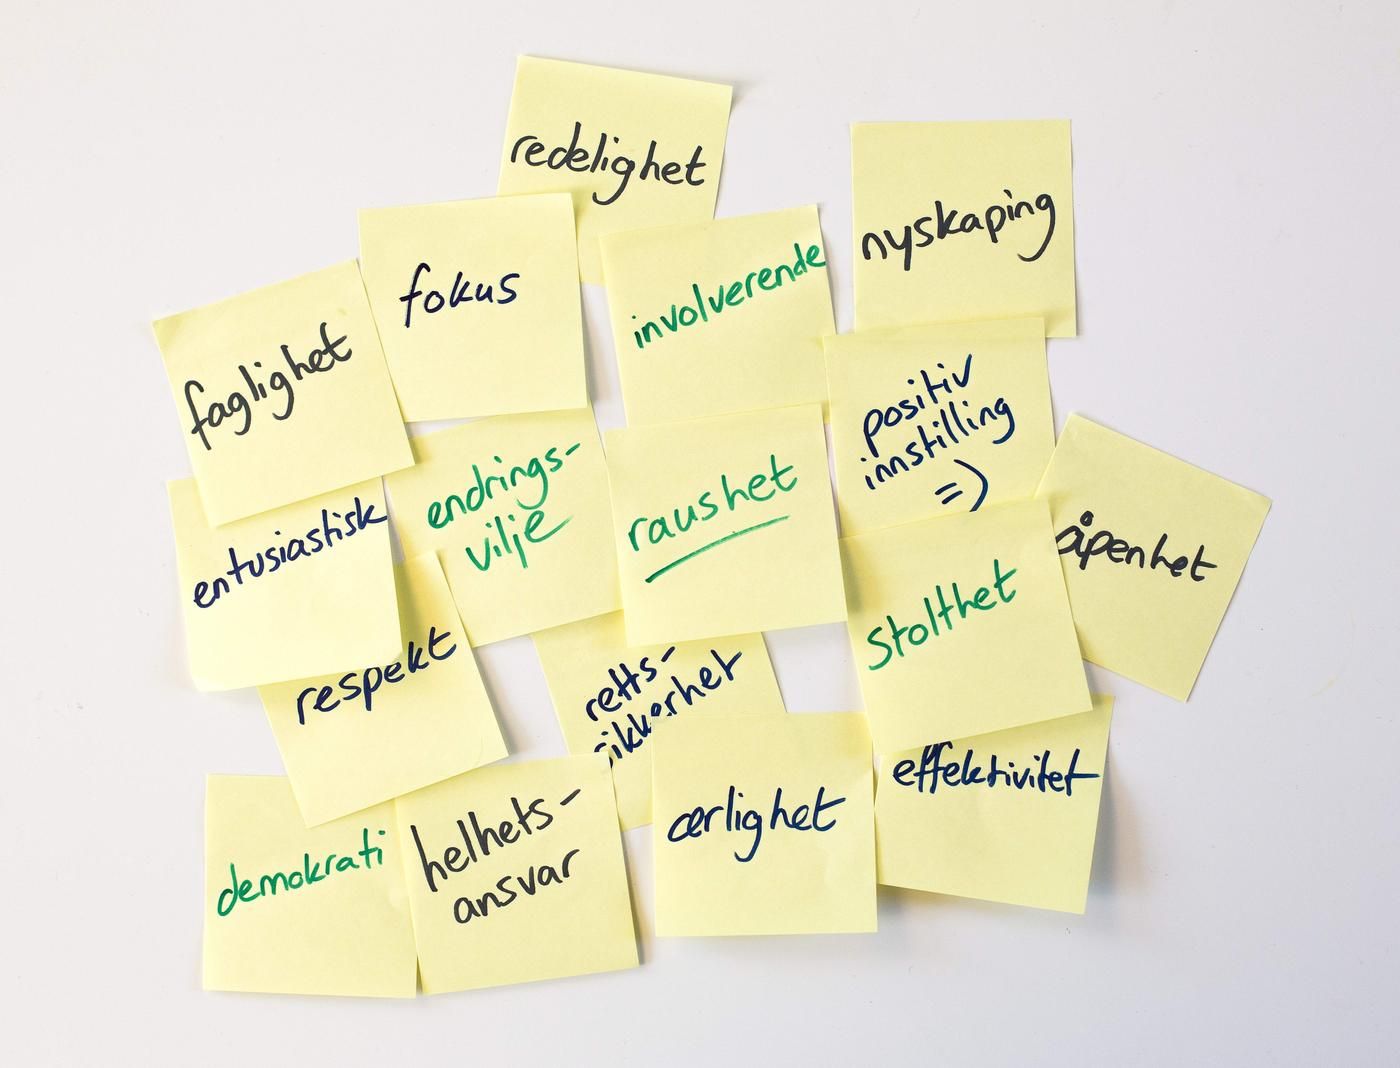 redelighet
nyskaping
fokus
involverende
faglighet
positiv
innstilling
=)
endrings-
vilje
raushet
entusiastisk
åpenhet
Stolthet
respekt
retts-
sikkerhet
effektivitet
demokrati
helhets-
ansvar
ærlighet